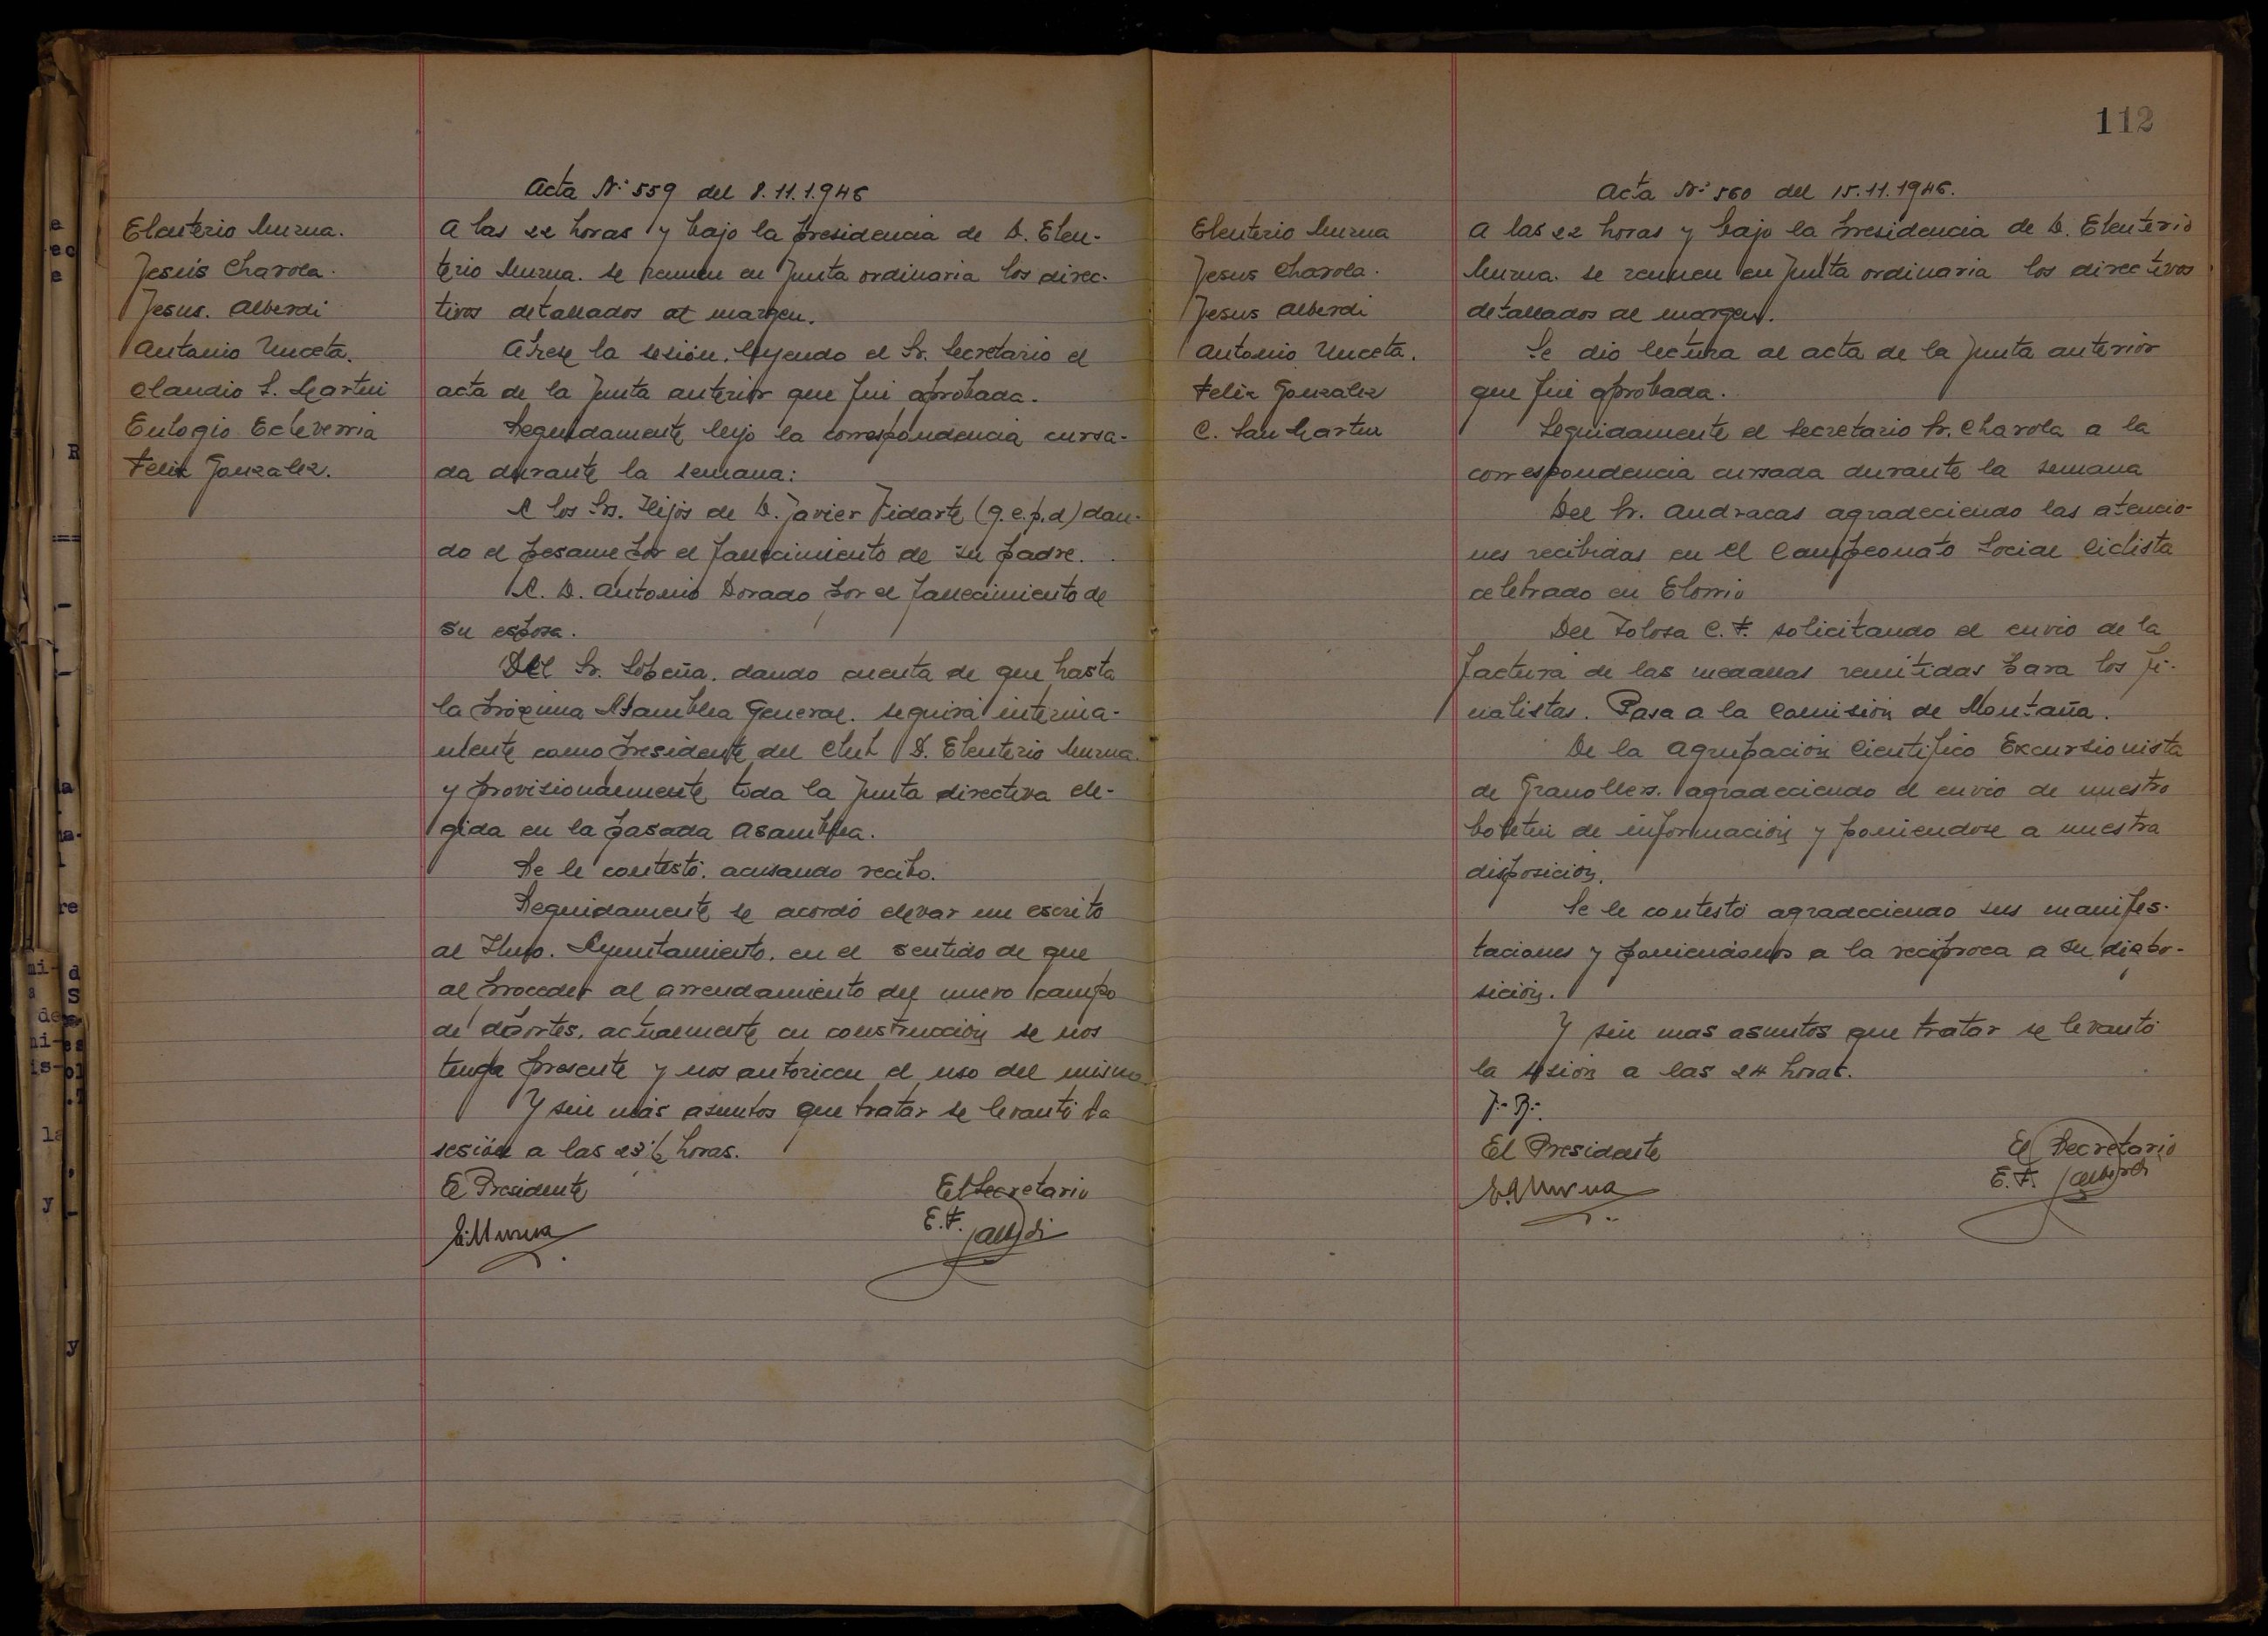 Acta Nº 559 del 8.11.1.946
Eleuterio Murua.
Jesús Charola.
Jesus. Alberdi
Antonio Unceta.
Claudio S. Martin
Eulogio Echeverria
Felix Gonzalez.
A las 22 horas y bajo la presidencia de D. Eleu-
terio Murua. se reunen en Junta ordinaria los direc-
tivos detallados al margen.
Abrese la sesión. leyendo el Sr. Secretario el
acta de la Junta anterior que fué aprobada.
Seguidamente leyo la correspondencia cursa-
da durante la semana:
A los Srs. Hijos de D. Javier Vidarte (q.e.p.d) dan-
do el pesame por el fallecimiento de su padre.
A. D. Antonio Dorado por el fallecimiento de
su esposa.
Del Sr. Sobeña. dando cuenta de que hasta
la próxima Asamblea General. seguirá interina-
mente como Presidente del Club D. Eleuterio Murua.
y provisionalmente toda la Junta directiva ele-
gida en la pasada Asamblea.
Se le contestó. acusando recibo.
Seguidamente se acordó elevar un escrito
al Iltmo. Ayuntamiento. en el sentido de que
al proceder al arrendamiento del nuevo campo
de deportes. actualmente en construcción se nos
tenga presente y nos autoricen el uso del mismo.
Y sin más asuntos que tratar se levantó la
sesión a las 23 ½ horas.
El Presidente
El Secretario
E. Murua
E.F. J Alberdi
112
Acta Nº 560 del 15.11.1946.
Eleuterio Murua
Jesus Charola.
Jesus Alberdi
Antonio Unceta.
Felix Gonzalez
C. San Martin
A las 22 horas y bajo la Presidencia de D. Eleuterio
Murua. se reunen en Junta ordinaria los directivos
detallados al margen.
Se dio lectura al acta de la Junta anterior
que fué aprobada.
Seguidamente el Secretario Sr. Charola a la
correspondencia cursada durante la semana
Del Sr. Andracas agradeciendo las atencio-
nes recibidas en el Campeonato Social Ciclista
celebrado en Elorrio
Del Tolosa C.F. solicitando el envio de la
factura de las medallas remitidas para los fi-
nalistas. Pasa a la Comisión de Montaña.
De la Agrupación Cientifico Excursionista
de Granollers. agradeciendo el envio de nuestro
boletin de información y poniendose a nuestra
disposición.
Se le contestó agradeciendo sus manifes-
taciones y poniendonos a la reciproca a su dispo-
sición.
Y sin mas asuntos que tratar se levantó
la sesión a las 24 horas.
El Presidente
El Secretario
E. Murua
E.F. J Alberdi